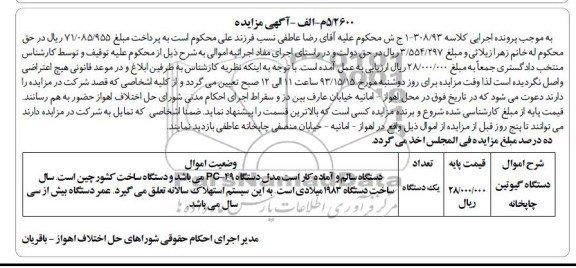 ۵/۲۶۰۰م-الف -آگهی مزایده
به موجب پرونده اجرایی کلاسه ۳۰۸/۹۳-۱ ج ش محکوم علیه آقای رضا عاطفی نسب فرزند علی محکوم است به پرداخت مبلغ ۷۱/۰۸۵/۹۵۵ ریال در حق
محکوم له خانم زهرا زیلائی و مبلغ ۳/۵۵۴/۲۹۷ ریال در حق دولت و در راستای اجرای مفاد اجرائیه اموالی به شرح ذیل از محکوم علیه توقیف و توسط کارشناس
منتخب دادگستری جمعاً به مبلغ ۲۸/۰۰۰/۰۰۰ ریال ارزیابی به عمل آمده است. با توجه به اینکه نظریه کارشناس به طرفین ابلاغ و در موعد قانونی هیچ اعتراضی
واصل نگردیده است لذا وقت مزایده برای روز دوشنبه مورخ ۹۳/۱۵/۱۵ ساعت ۱۱ الی ۱۲ صبح تعیین می گردد و از کلیه اشخاصی که قصد شرکت در مزایده را
دارند دعوت می شود که در تاریخ فوق در محل اهواز - امانیه خیابان عارف بین دز و سقراط اجرای احکام مدنی شورای حل اختلاف اهواز حضور به هم رسانند.
قیمت پایه از مبلغ کارشناسی شده شروع و برنده مزایده کسی است که بالاترین قیمت را پیشنهاد نماید. ضمناً اشخاصی که تمایل به شرکت در مزایده دارند
می توانند تا پنج روز قبل از مزایده از اموال ذیل واقع در اهواز - امانیه - خیابان منصفی چاپخانه عاطفی بازدید نمایند.
ده درصد مبلغ مزایده فی المجلس اخذ می گردد.
شرح اموال قیمت پایه تعداد وضعیت اموال
دستگاه گیوتین چاپخانه ۲۸/۰۰۰/۰۰۰ ریال یک دستگاه دستگاه سالم و آماده کار است مدل دستگاه PC-۴۹ می باشد و دستگاه ساخت کشور چین است. سال
ساخت دستگاه ۱۹۸۳ میلادی است. به این سیستم استهلاک سالانه تعلق می گیرد. عمر دستگاه بیش از سی
سال می باشد.
مدیر اجرای احکام حقوقی شوراهای حل اختلاف اهواز - باقریان